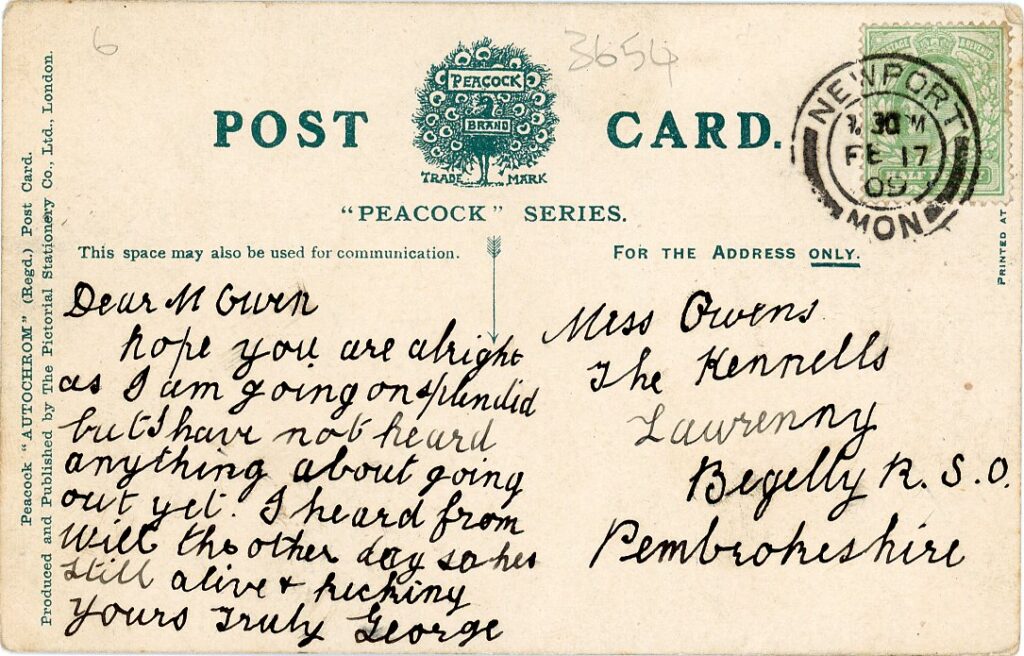 6
3654
POST CARD.
PEACOCK
BRAND
TRADE MARK
"PEACOCK" SERIES.
This space may also be used for communication.
FOR THE ADDRESS ONLY.
NEWPORT
30 M
FE 17
09
MON
HALF
PRINTED AT
Peacock "AUTOCHROM" (Regd.) Post Card.
Produced and Published by The Pictorial Stationery Co., Ltd., London.
Dear M Owen
hope you are alright
as I am going on splendid
but I have not heard
anything about going
out yet. I heard from
Will the other day so hes
still alive + kicking
Yours Truly George
Miss Owens
The Kennells
Lawrenny
Begelly R.S.O.
Pembrokeshire